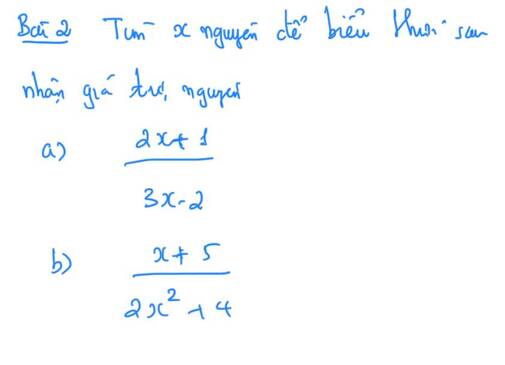 Bài 2 Tìm x nguyên để biểu thức sau
nhận giá trị nguyên
a) \frac{2x+1}{3x-2}
b) \frac{x+5}{2x^2+4}